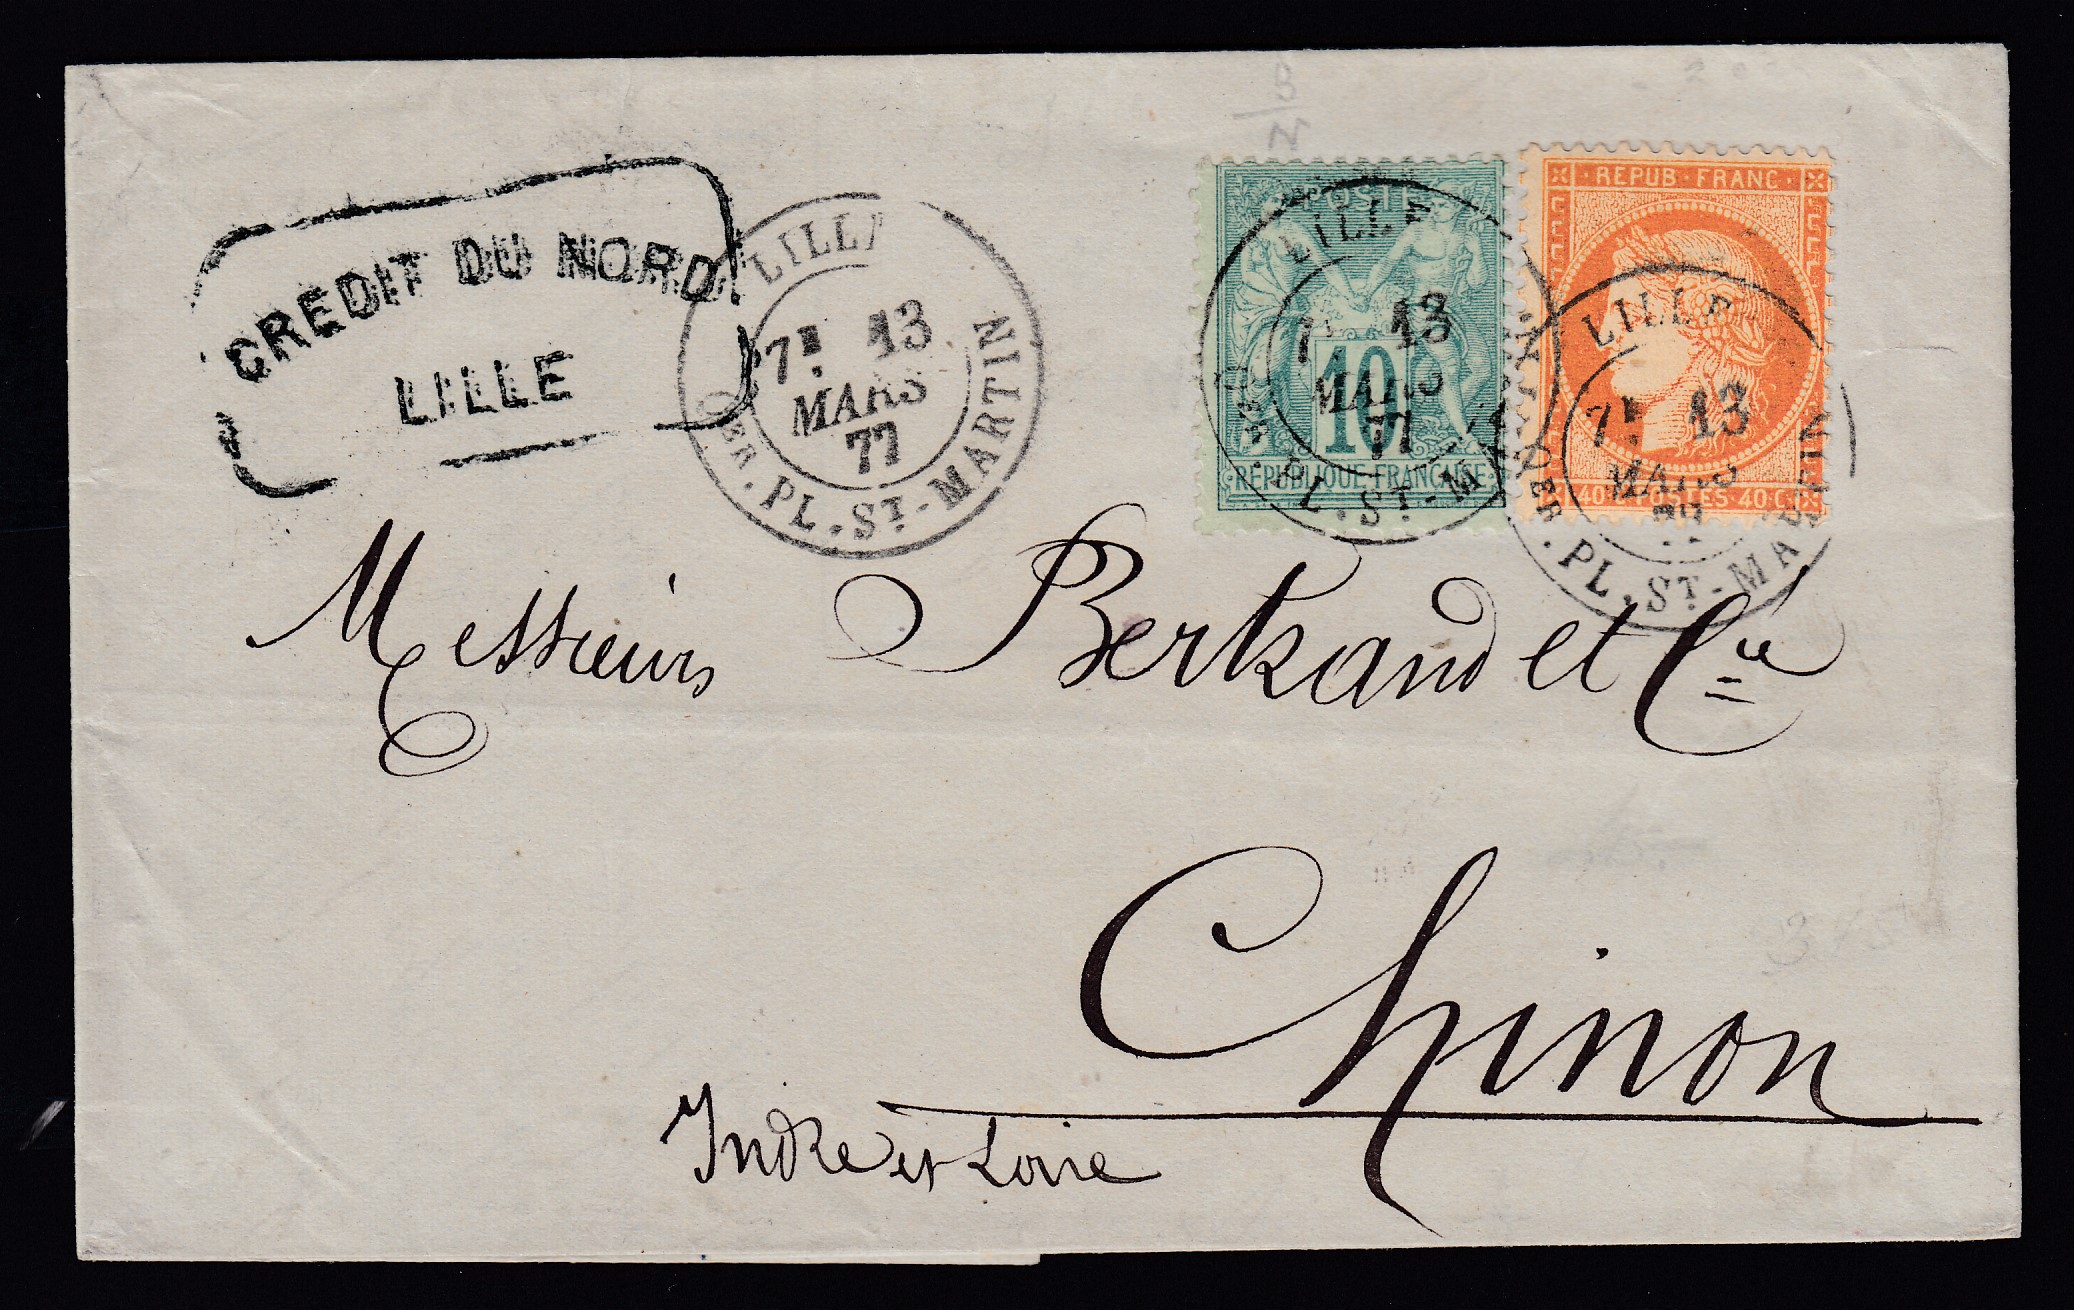 CREDIT DU NORD
LILLE
LILLE
7E 13
MARS
77
QER. PL. ST.-MARTIN
POSTE
10
REPUBLIQUE FRANCAISE
LILLE
13
MARS
77
PL. ST.-M
REPUB FRANC
40C POSTES 40C
LILLE
7E 13
MARS
77
QER. PL. ST.-MARTIN
Messieurs Bertrand et Cie
Chinon
Indre et Loire